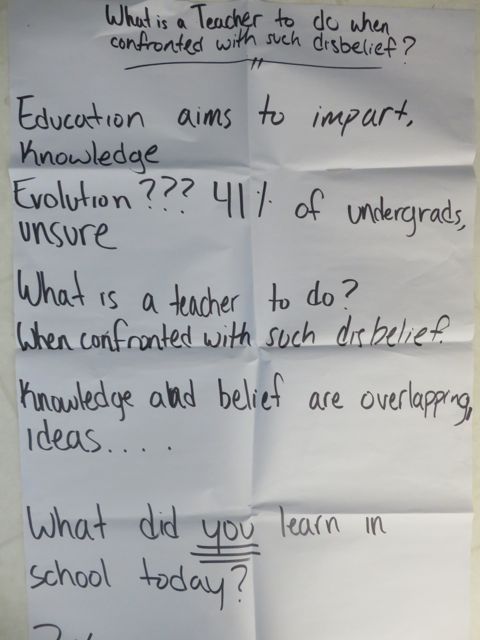 What is a Teacher to do when
confronted with such disbelief?
Education aims to impart,
Knowledge
Evolution ??? 41% of undergrads,
unsure
What is a teacher to do?
When confronted with such disbelief.
Knowledge and belief are overlapping,
ideas....
What did you learn in
school today?